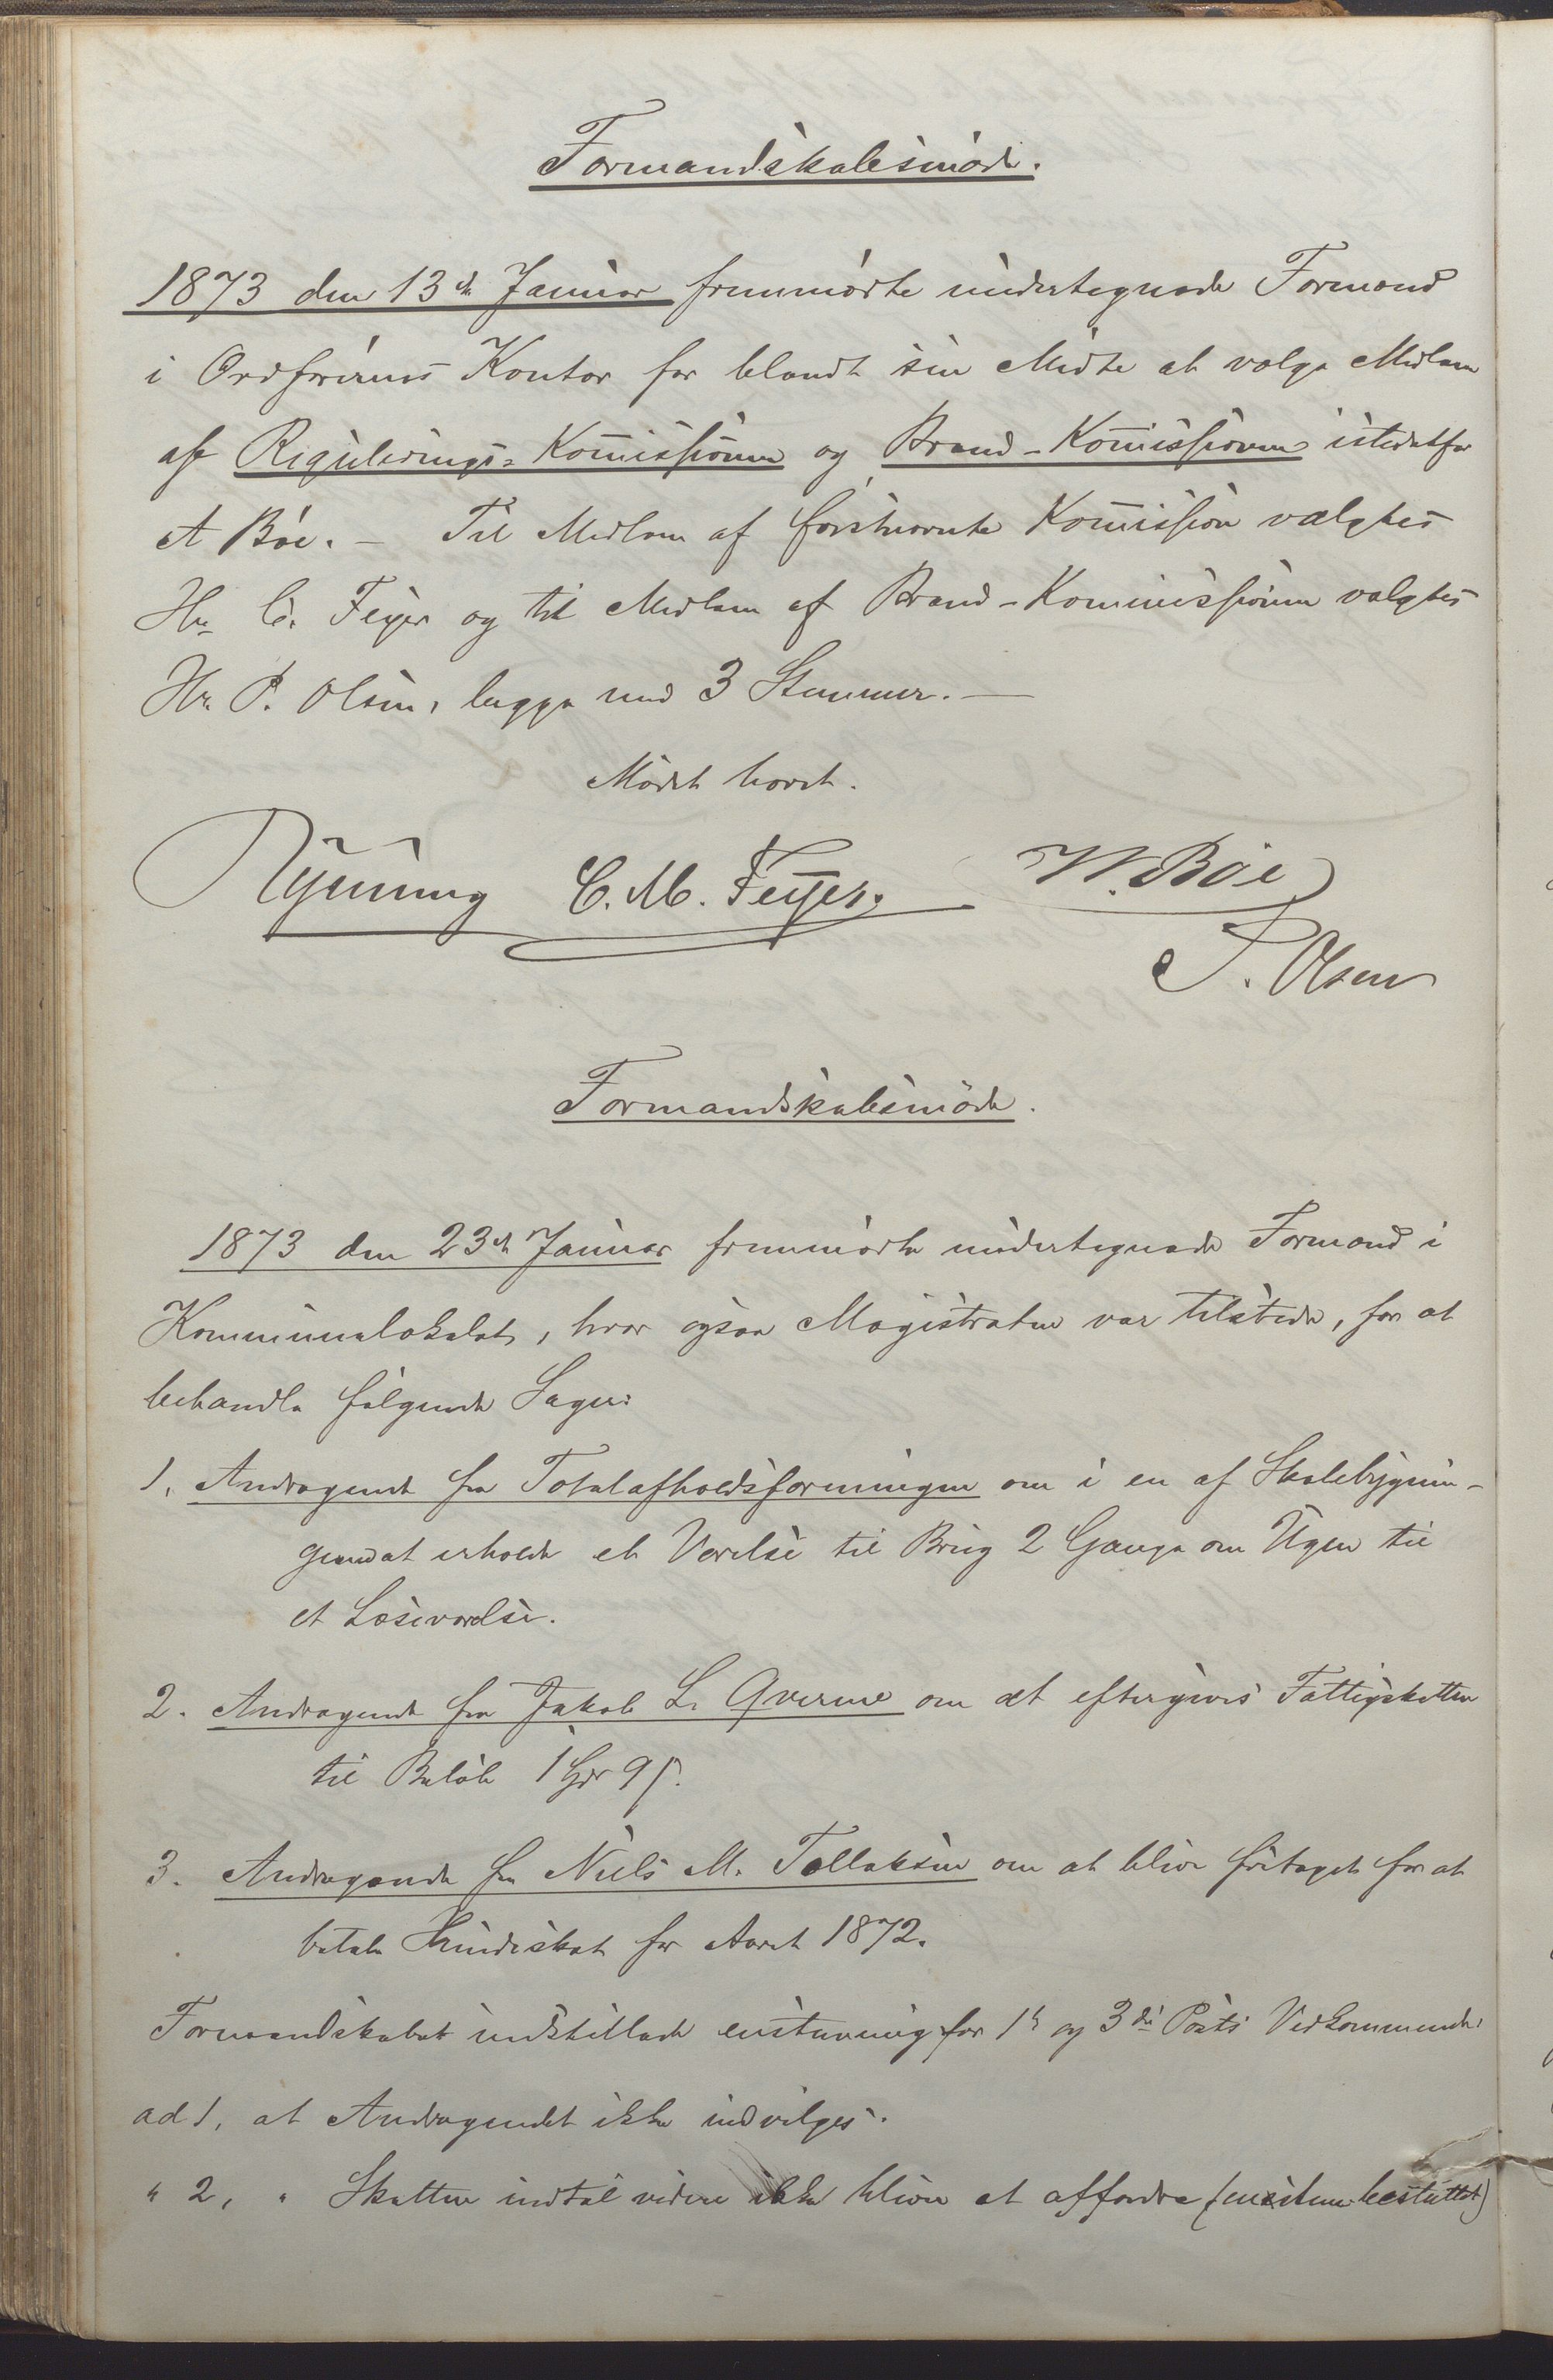 Formandskabsmøde.
1873 den 13de Januar fremmødte undertegnede Formænd
i Ordførerens Kontor for blandt sin Midte at vælge Medlem
af Regulerings-Kom̄issionen og Brand-Kom̄issionen istedetfor
A Bøe. — Til Medlem af førstnævnte Kom̄ission valgtes
Hr. C. Feyer og til Medlem af Brand-Kommissionen valgtes
Hr. P. Olsen, begge med 3 Stemmer. —
Mødet hævet.
Nyming C. M. Feyer. W. Bøe
P. Olsen
Formandskabsmøde.
1873 den 23de Januar fremmødte undertegnede Formænd i
Kommunelokalet, hvor ogsaa Magistraten var tilstede, for at
behandle følgende Sager:
1, Andragende fra Totalafholdsforeningen om i en af Skolebygnin-
gerne at erholde et Værelse til Brug 2 Gange om Ugen til
et Læseværelse.
2. Andragende fra Jakob L. Qverme om at eftergives Fattigskatten
til Beløb 1 Spd 9 s.
3. Andragende fra Niels M. Tollaksen om at blive fritaget for at
betale Hundeskat for Aaret 1872.
Formandskabet indstillede enstemmig for 1ste og 3die Posts Vedkommende:
ad 1, at Andragendet ikke indvilges.
" 2, " Skatten indtil videre ikke bliver at affordre (enstem. besluttet)